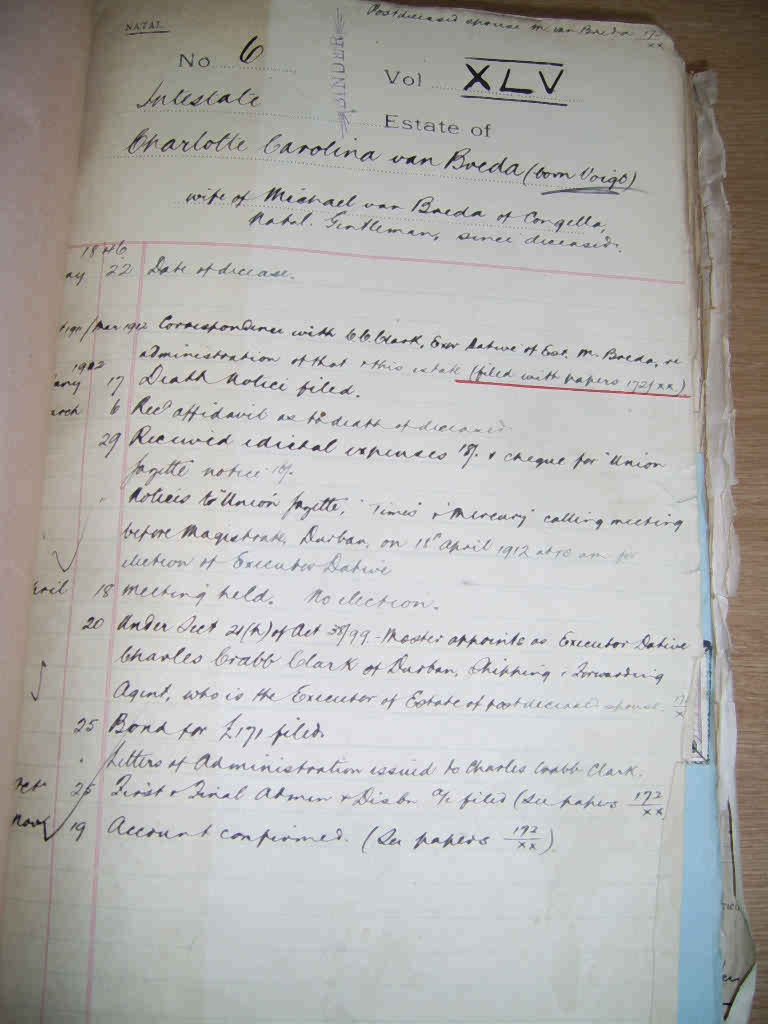 NATAL
Postdeceased spouse M. van Breda 172/xx
No 6
BINDER
Vol XLV
Intestate
Estate of
Charlotte Carolina van Breda (born Voigt)
wife of Michael van Breda of Congella,
Natal. Gentleman, since deceased.
1846
ay 22 Date of decease.
1911/Mar 1912 Correspondence with C C Clark, Exor Dative of Est. M. Breda, re
administration of that & this estate (filed with papers 172/xx)
1912
17 Death Notice filed.
arch 6 Recd affidavit as to death of deceased
29 Received edictal expenses 15/- & cheque for "Union
Gazette notice
" Notices to "Union Gazette, "Times" & "Mercury" calling meeting
before Magistrate, Durban, on 18th April 1912 at 10 am for
election of Executor Dative
pril 18 Meeting held. No election.
20 Under Sect 21(h) of Act 38/99 - Master appoints as Executor Dative
Charles Crabb Clark of Durban, Shipping & Forwarding
Agent, who is the Executor of Estate of postdeceased spouse. 172/x
25 Bond for £171 filed.
" Letters of Administration issued to Charles Crabb Clark.
Oct 25 First & Final Admin & Distbn a/c filed (see papers 172/xx
Nov 19 Account confirmed. (See papers 172/xx)